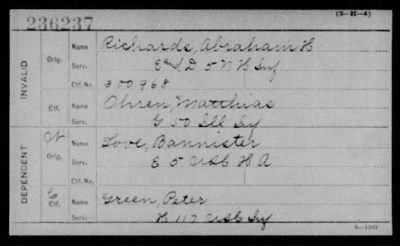 (3-H-4)
236237
INVALID
Orig.
Name Richards, Abraham H
Serv. E and D 5 N H Inf
Ctf. No. 300968
Ctf.
Name Ohren, Matthias
Serv. G 50 Ill Iy
DEPENDENT
Orig.
Name Love, Bannister
Serv. E 5 USC H A
Ctf. No.
C
Ctf.
Name Green, Peter
Serv. H 117 USC Iy